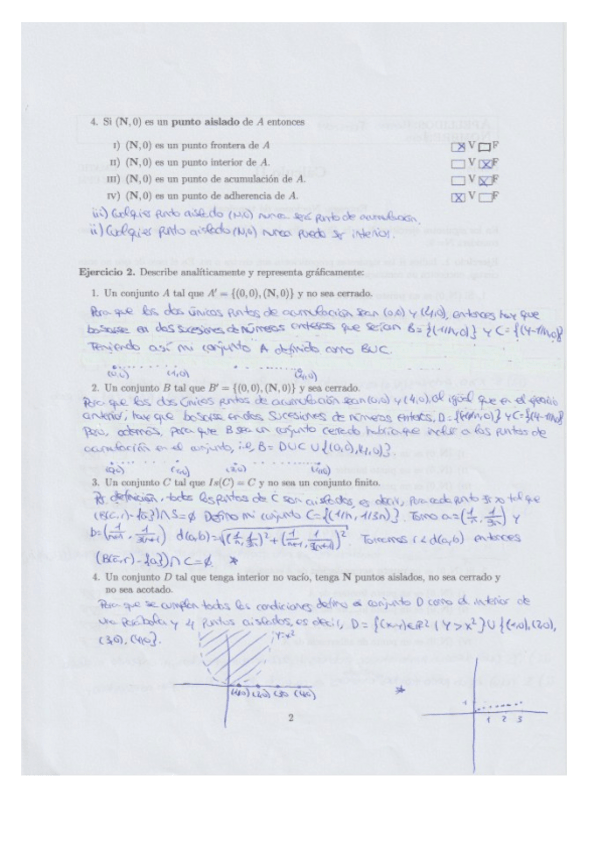 4. Si (N, 0) es un punto aislado de A entonces
I) (N, 0) es un punto frontera de A V F
II) (N, 0) es un punto interior de A. V F
III) (N, 0) es un punto de acumulación de A. V F
IV) (N, 0) es un punto de adherencia de A. V F
iii) Cualquier punto aislado (N,0) nunca será punto de acumulación.
ii) Cualquier punto aislado (N,0) nunca puede ser interior.
Ejercicio 2. Describe analíticamente y representa gráficamente:
1. Un conjunto A tal que A' = {(0, 0), (N, 0)} y no sea cerrado.
Para que los dos únicos puntos de acumulación sean (0,0) y (4,0), entonces hay que
basarse en dos sucesiones de números que serían B = {(1/n,0)} y C = {(4-1/n,0)}
Teniendo así mi conjunto A definido como BUC.
(0,0) (4,0)
2. Un conjunto B tal que B' = {(0, 0), (N, 0)} y sea cerrado.
Para que los dos únicos puntos de acumulación sean (0,0) y (4,0), al igual que en el ejercicio
anterior, hay que basarse en dos sucesiones de números, D = {(1/n,0)} y C = {(4-1/n,0)}
Pero, además, para que B sea un conjunto cerrado habría que incluir a los puntos de
acumulación en el conjunto, i.e, B = D U C U {(0,0), (4,0)}.
3. Un conjunto C tal que Is(C) = C y no sea un conjunto finito.
definición, todos los puntos de C son aislados, es decir, para cada punto tal que
Defino mi conjunto C = {(1/n, 1/3n)}. Tomo a = (1/n, 1/3n) y
b = (1/n+1, 1/3(n+1)) d(a,b) = √(1/n, 1/3n)² + (1/n+1, 1/3(n+1))² Tomemos r < d(a,b) entonces
(B(a,r) - {a}) ∩ C = ∅ *
4. Un conjunto D tal que tenga interior no vacío, tenga N puntos aislados, no sea cerrado y
no sea acotado.
Para que se cumplan todas las condiciones defino el conjunto D como el interior de
una parábola y 4 puntos aislados, es decir, D = {(x,y) ∈ R² / y > x²} U {(1,0), (2,0),
(3,0), (4,0)}.
y=x²
(1,0) (2,0) (3,0) (4,0)
*
1
1 2 3
2